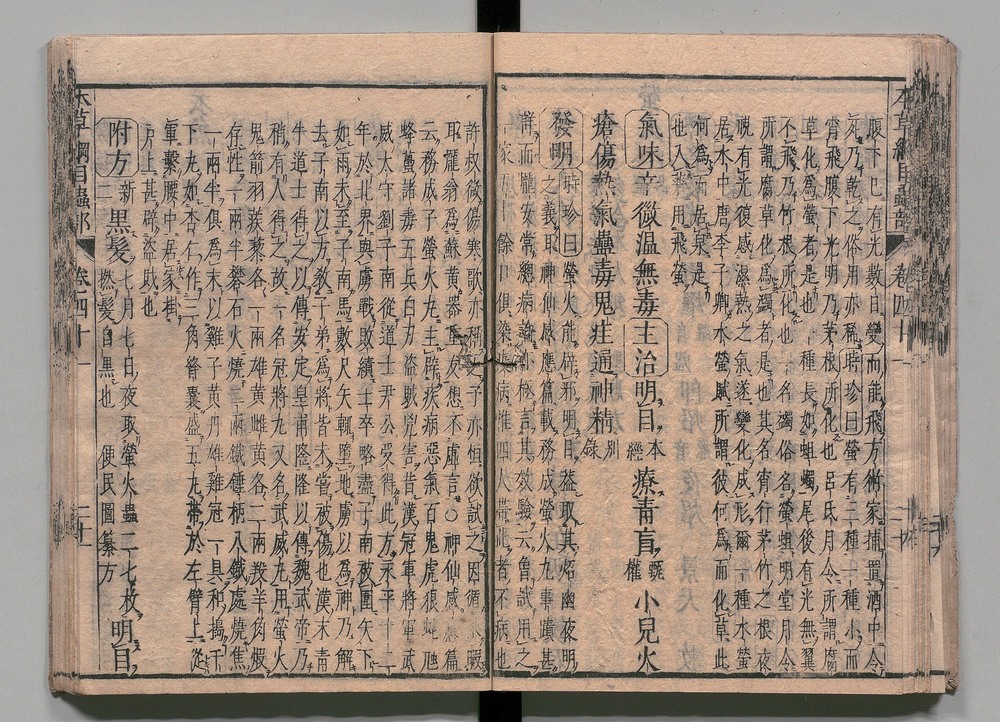 本草綱目蟲部 卷四十一
取下巳有光數日變而能飛方術家捕置酒中令
死乃乾之俗用亦稀時珍曰螢有三種一種小而
宵飛腹下光明乃茅根所化也呂氏月令所謂腐
草化爲螢者是也一種長如蛆蠋尾後有光無翼
不飛乃竹根所化也一名蠲俗名螢蛆明堂月令
所謂腐草化爲蠲者是也其名宵行茅竹之根夜
視有光復感濕熱之氣遂變化成形爾一種水螢
居水中唐李子卿水螢賦所謂彼何爲而化草此
何爲而居泉是
也入藥用飛螢
氣味辛微温無毒主治明目本經療青盲甄權小兒火
瘡傷熱氣蠱毒鬼疰通神精別錄
發明時珍曰螢火能辟邪明目葢取其照幽夜明
之義耳神仙感應篇載務成螢火丸事蹟甚
詳而龐安常總病論亦極言其效驗云曾試用之
一家五十餘口俱染疫病惟四人帶此者不病也
許叔微傷寒歌亦稱之予亦恒欲試之因循
耳龐翁爲蘇黄器重友想不虛言○神仙感應篇
云務成子螢火丸主辟疾病惡氣百鬼虎狼蛇虺
蜂蠆諸毒五兵白刃盜賊凶害昔漢冠軍將軍武
威太守劉子南從道士尹公受得此方永平十二
年於北界與虜戰敗績士卒略盡子南被圍矢下
如雨未至子南馬數尺矢輒墮地虜以爲神乃解
去子南以方教子弟爲將皆未嘗被傷也漢末青
牛道士得之以傳安定皇甫隆隆以傳魏武帝乃
稍有人得之故一名冠將丸又名武威丸用螢火
鬼箭羽蒺藜各一兩雄黄雌黄各二兩羖羊角煅
存性一兩半礬石火燒二兩鐵錘柄入鐵處燒焦
一兩半俱爲末以雞子黄丹雄雞冠一具和搗千
下丸如杏仁作三角絳囊盛五丸帶於左臂上從
軍繫腰中居家掛
戶上甚辟盜賊也
附方新二黑髮七月七日夜取螢火蟲二七枚
撚髮自黑也 便民圖纂方 明目
本草綱目蟲部 卷四十一